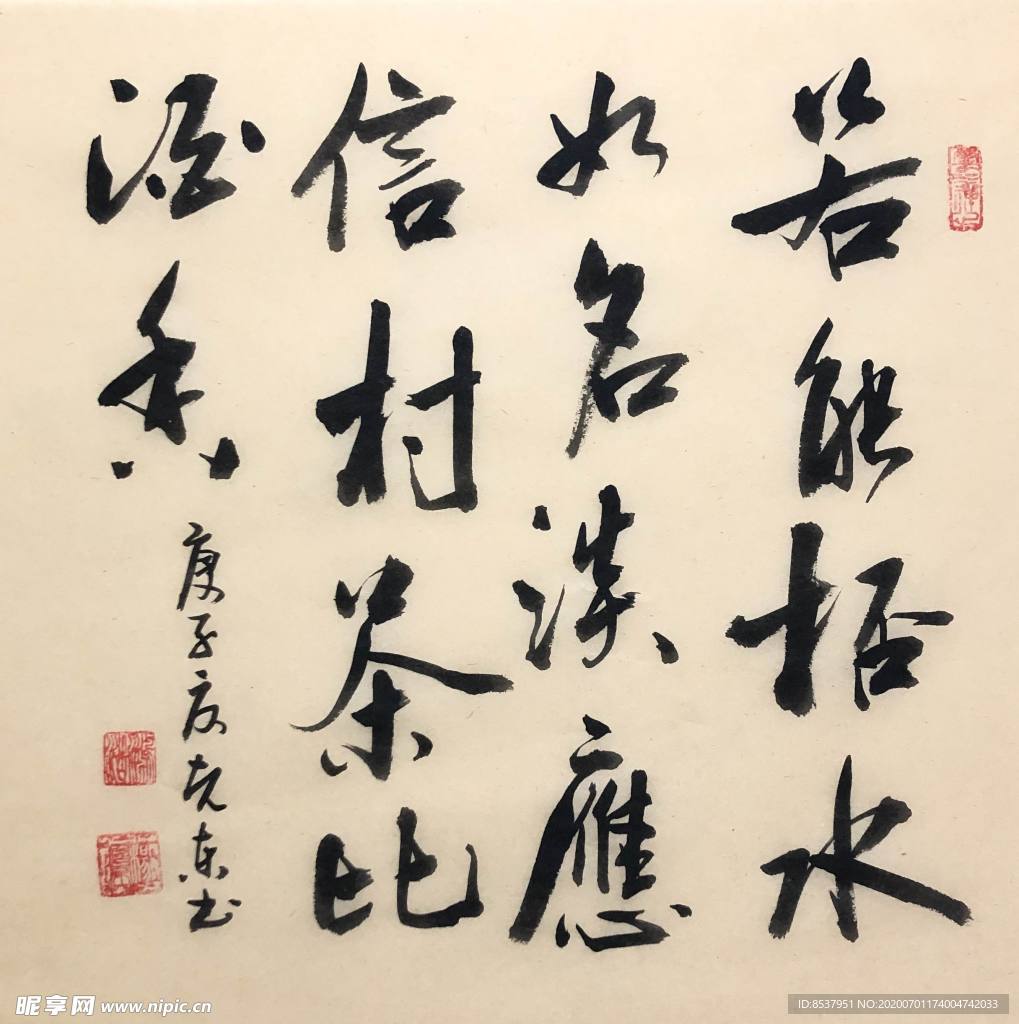 若能桮水
如名淡應
信村茶比
酒香
庚子夏克东书
昵享网 www.nipic.cn
ID:8537951 NO:20200701174004742033